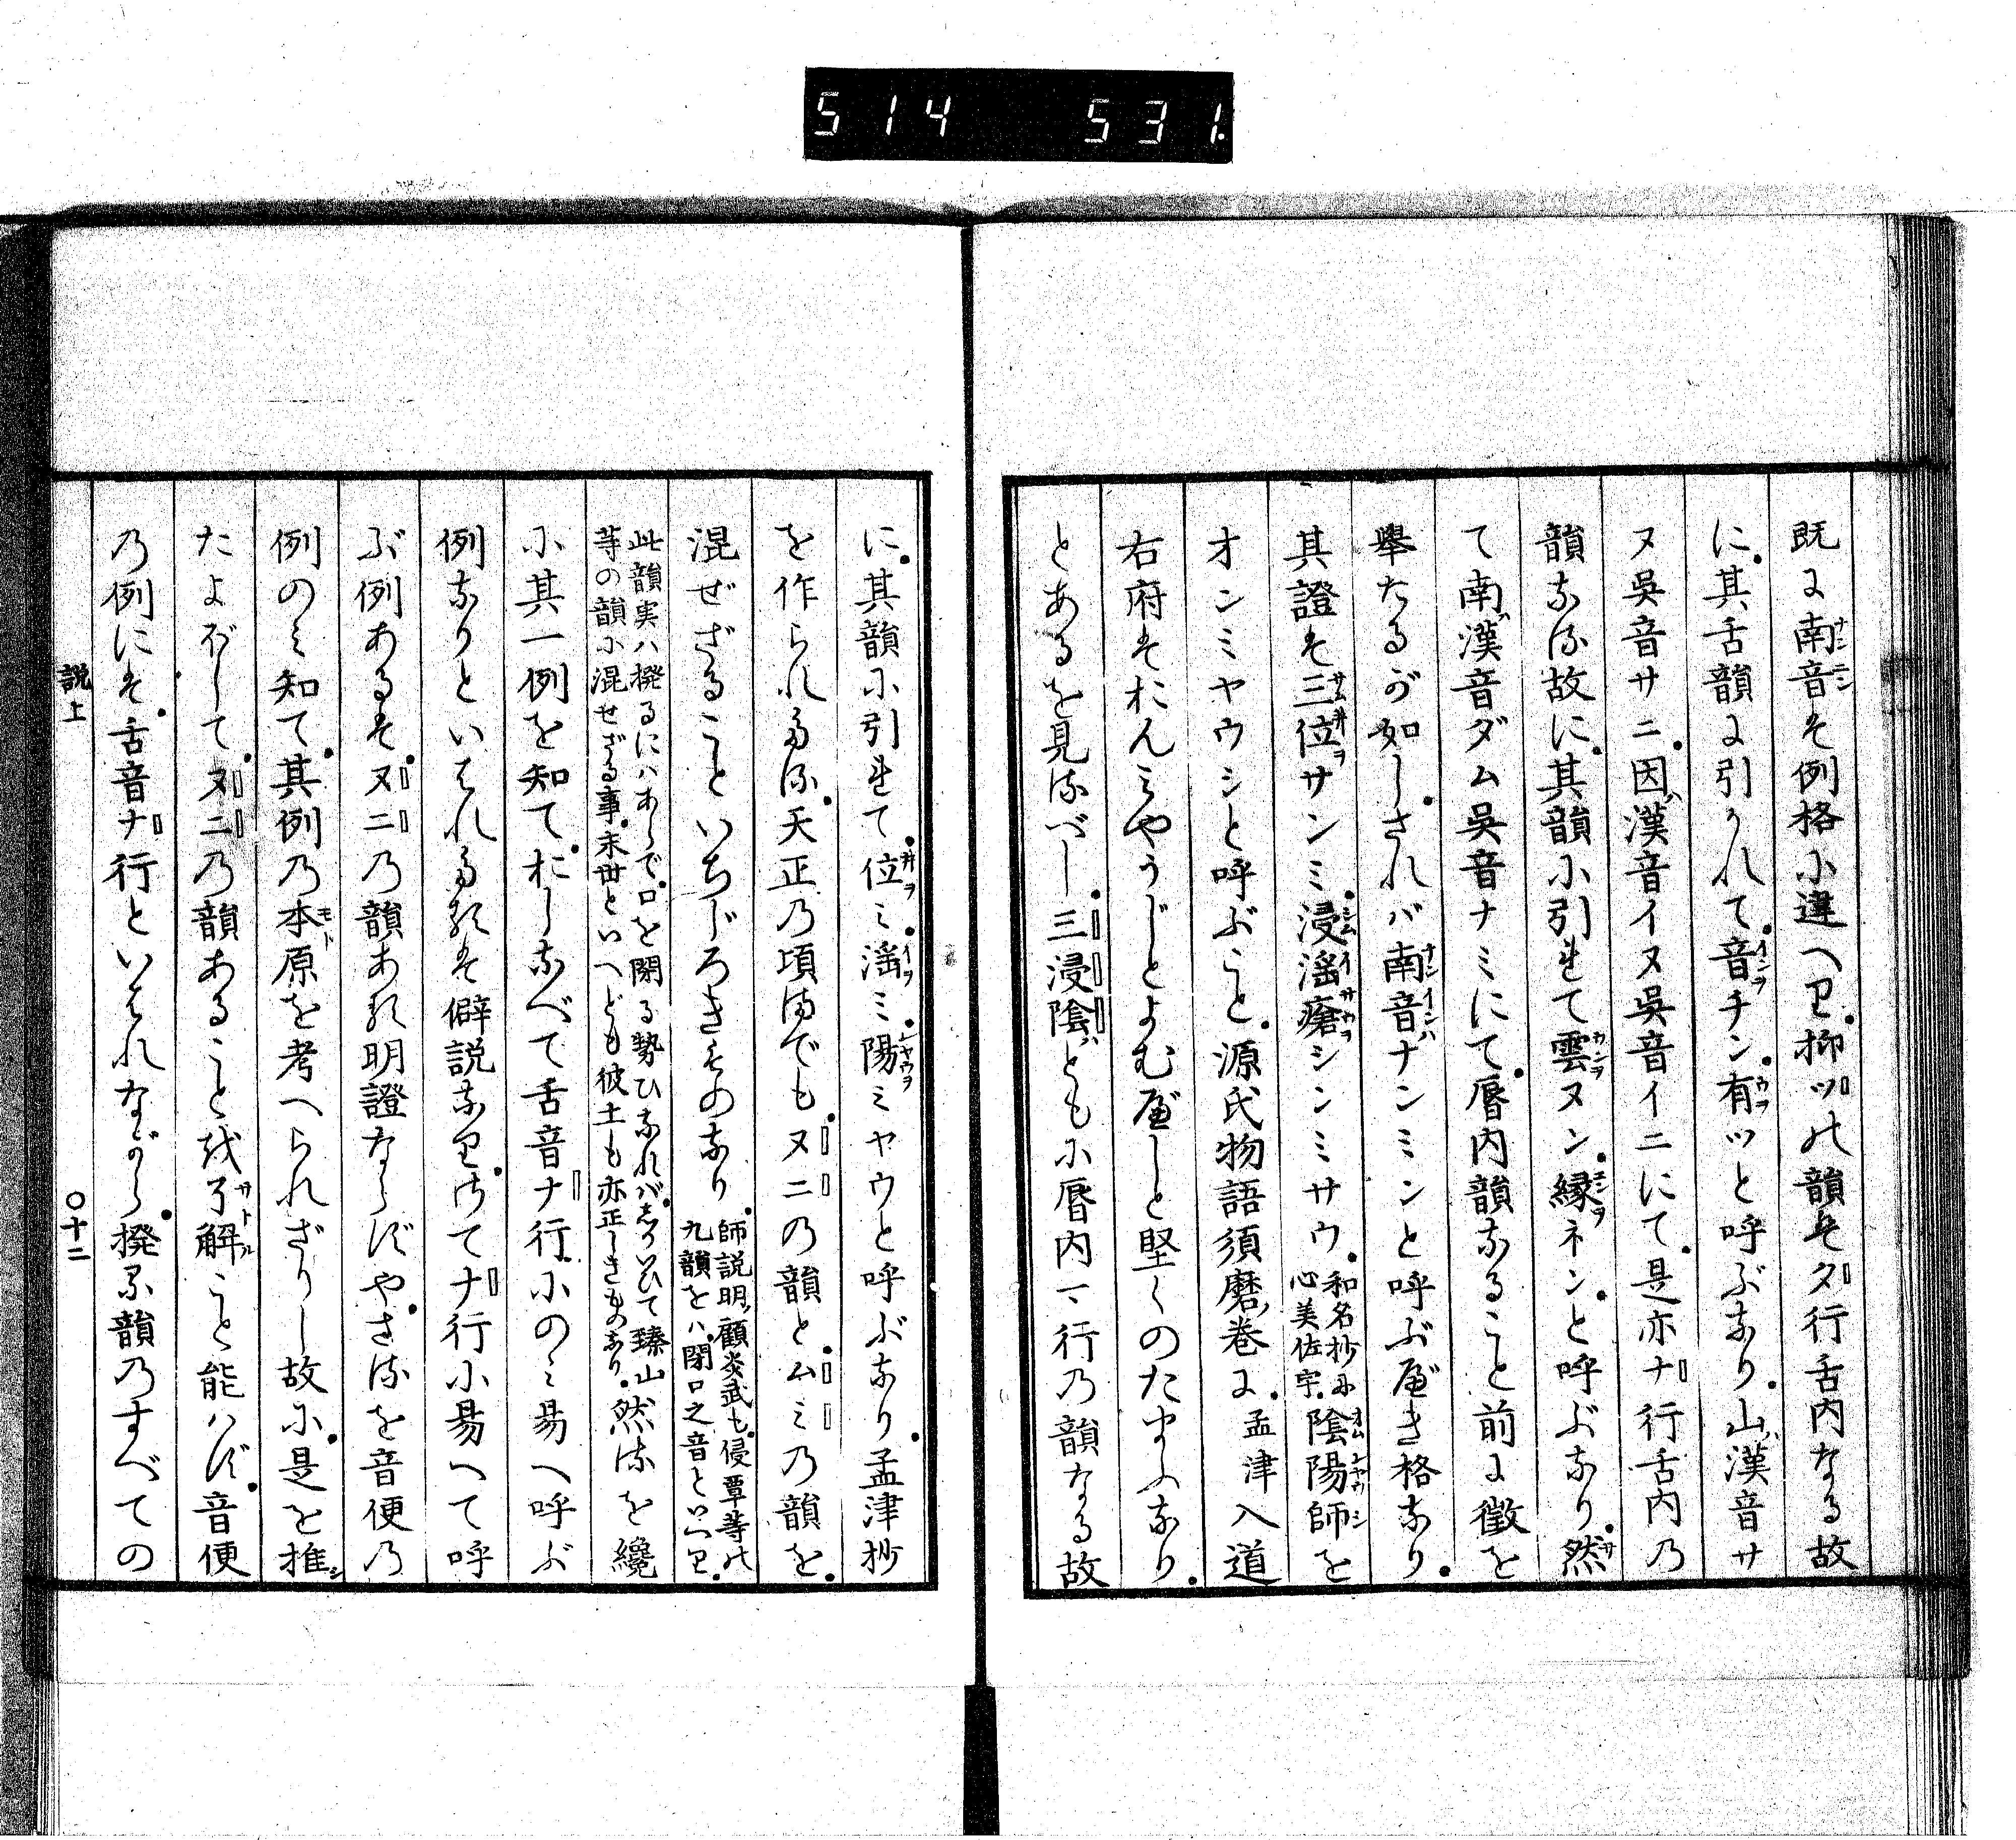 514 531.
既に南音は例格に違へり。抑ツの韻はタ行舌内なる故
に。其舌韻に引かれて。音チン。有ツと呼ぶなり。山漢音サ
ヌ呉音サニ。因漢音イヌ呉音イニにて。是亦ナ行舌内の
韻なる故に。其韻に引れて雲ヌン。縁ネン。と呼ぶなり。然
て南漢音ダム呉音ナミにて。唇内韻なること前に徴を
挙たるが如し。されバ南音ナンミンと呼ぶべき格なり。
其證は三位サンミ。浸淫瘡シンミサウ。和名抄に心美佐宇。陰陽師を
オンミヤウシと呼ぶこと。源氏物語須磨巻に。孟津入道
右府はおんみやうじとよむべしと堅くのたまふなり。
とあるを見るべし。三浸陰ともに唇内マ行の韻なる故
に。其韻に引れて。位ミ淫ミ陽ミヤウと呼ぶなり。孟津抄
を作られたる。天正の頃までも。ヌニの韻とムミの韻を。
混ぜざることいちじろきものなり。師説明顧炎武も。侵覃等の九韻をハ閉口之音といへり。
此韻実ハ撥るにハあらで。口を閉る勢ひなれバ。しかいひて臻山等の韻に混せざる事。末世といへども彼土も亦正しきものなり。然るを纔
に其一例を知て。おしなべて舌音ナ行にのみ易へ呼ぶ
例なりといはれたるは僻説なり。さてナ行に易へて呼
ぶ例あるは。ヌニの韻ある明證ならずや。さるを音便の
例のみ知て。其例の本原を考へられざりし故に。是を推
たよぼして。ヌニの韻あることを了解こと能ハず。音便
の例には。舌音ナ行といはれながら。撥る韻のすべての
説上
〇十二